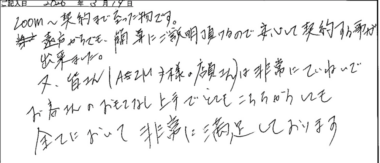 ご記入日 2020 年 3月19日
zoom〜契約まで会った物です。
遠方からでも、簡単にご説明頂けるので安心して契約する事が
出来ました。
又、皆さん(AさんM様の店員さん)は非常にていねいで
お客さんのおもてなし上手でとてもこちらからしても
全てにおいて非常に満足しております